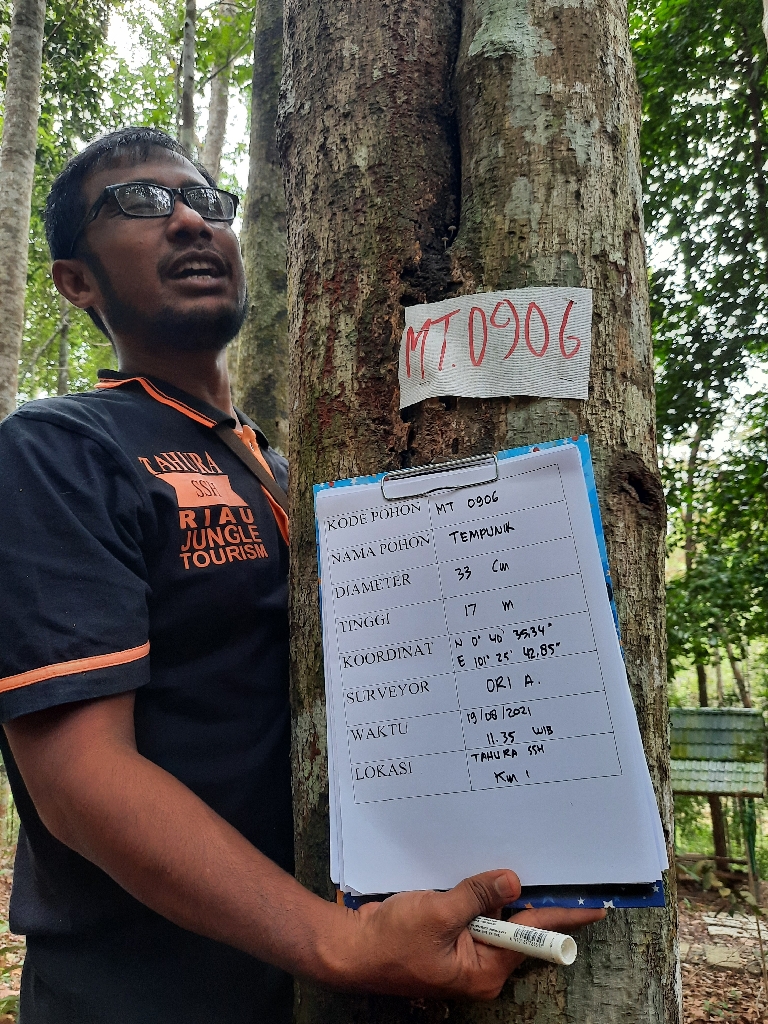 MT.0906
TAHURA
SSH
RIAU
JUNGLE
TOURISM
KODE POHON MT 0906
NAMA POHON TEMPUNIK
DIAMETER 33 Cm
TINGGI 17 m
KOORDINAT N 0° 40' 35,34"
E 101° 25' 42,85"
SURVEYOR ORI A.
WAKTU 19/08/2021
11.35 WIB
LOKASI TAHURA SSH
Km 1